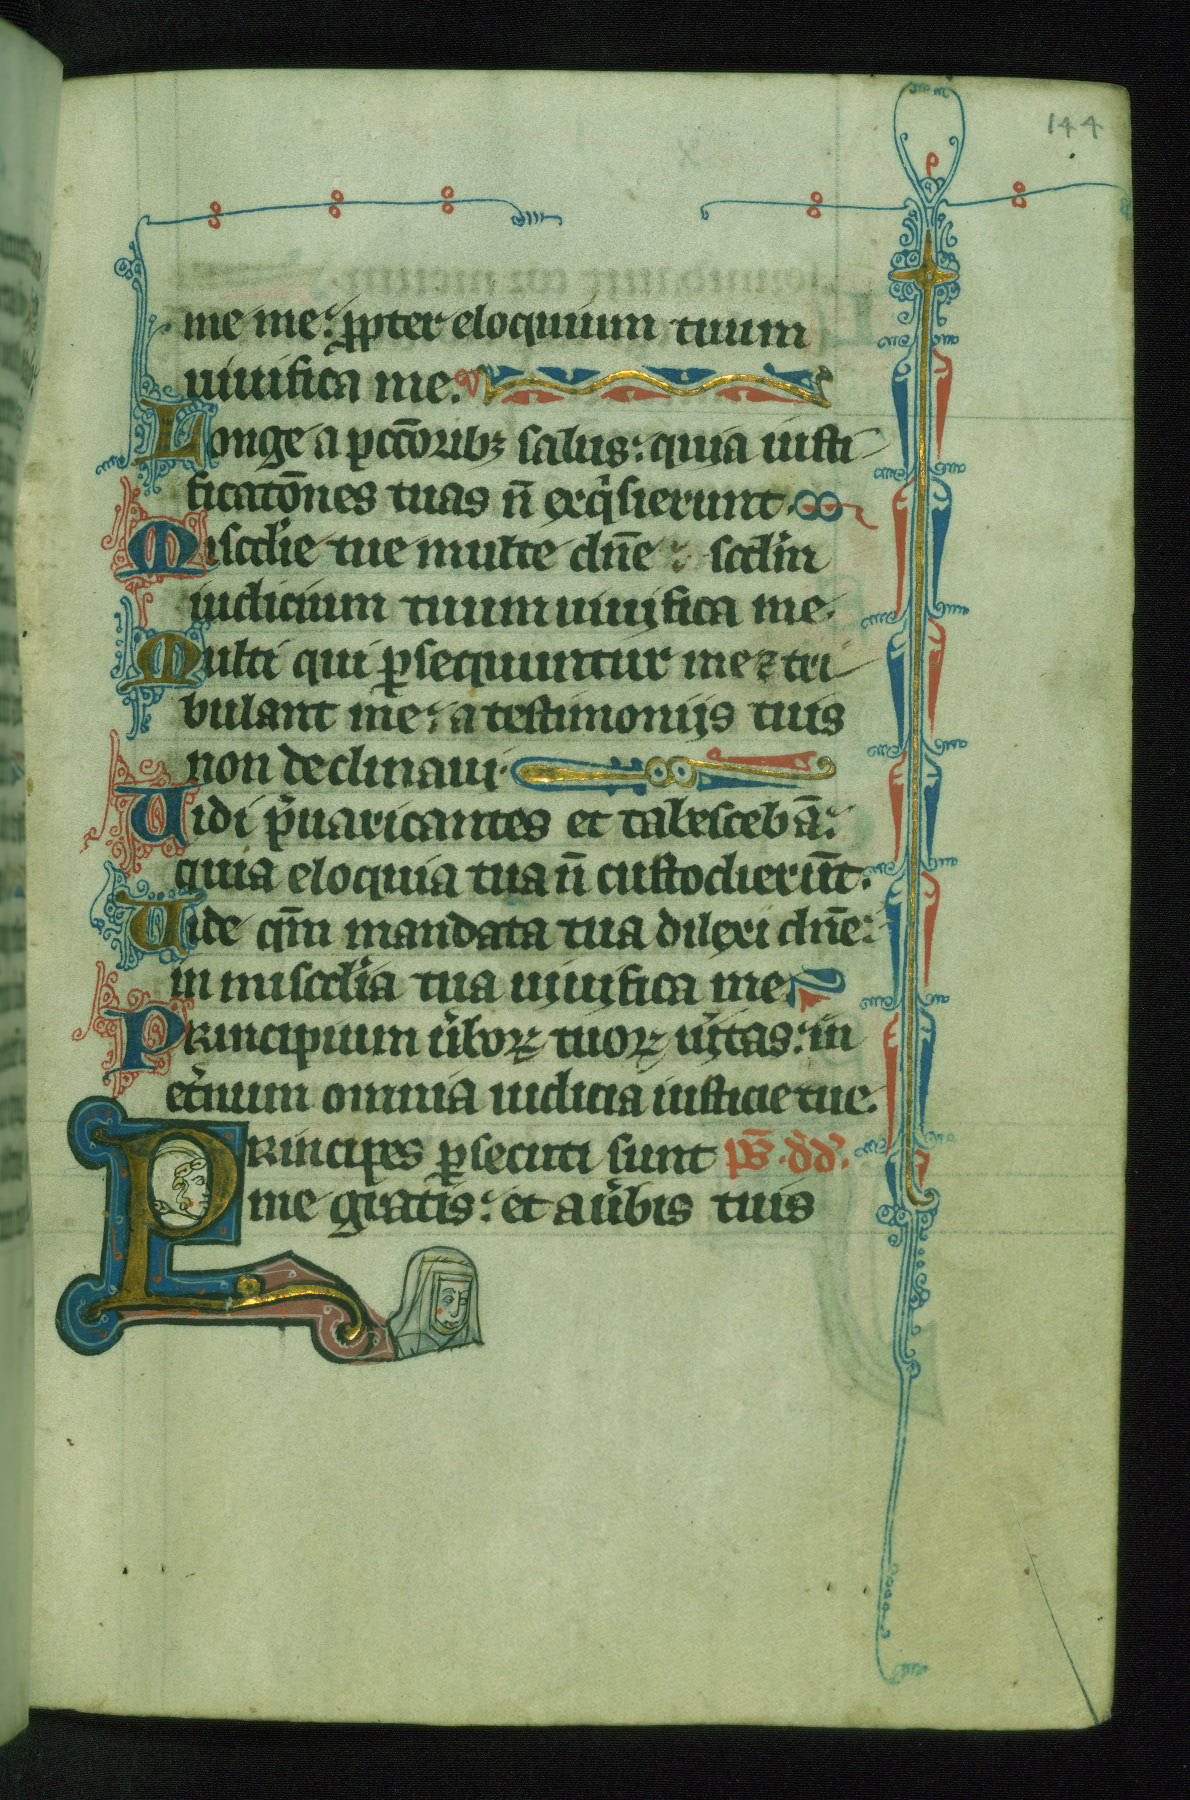 144
me me: ꝓpter eloquium tuum
uiuifica me.
Longe a pctōribꝫ salus: quia iusti
ficatōnes tuas n̄ exqͥsierunt.
Miscdͥe tue multe dn̄e: scdͫ
iudicium tuum uiuifica me.
Multi qui ꝑsequuntur me ⁊ tri
bulant me: a testimonijs tuis
non declinaui.
Uidi p̄uaricantes et tabesceba̅:
quia eloquia tua n̄ custodieru̅t.
Uide qm̄ mandata tua dilexi dn̄e:
in miscdͥa tua uiuifica me
Principium ũboꝝ tuoꝝ ũitas: in
et̃num omnia iudicia iusticie tue.
Principes ꝑsecuti sunt ps̄. dd̄.
me gratis: et a ũbis tuis